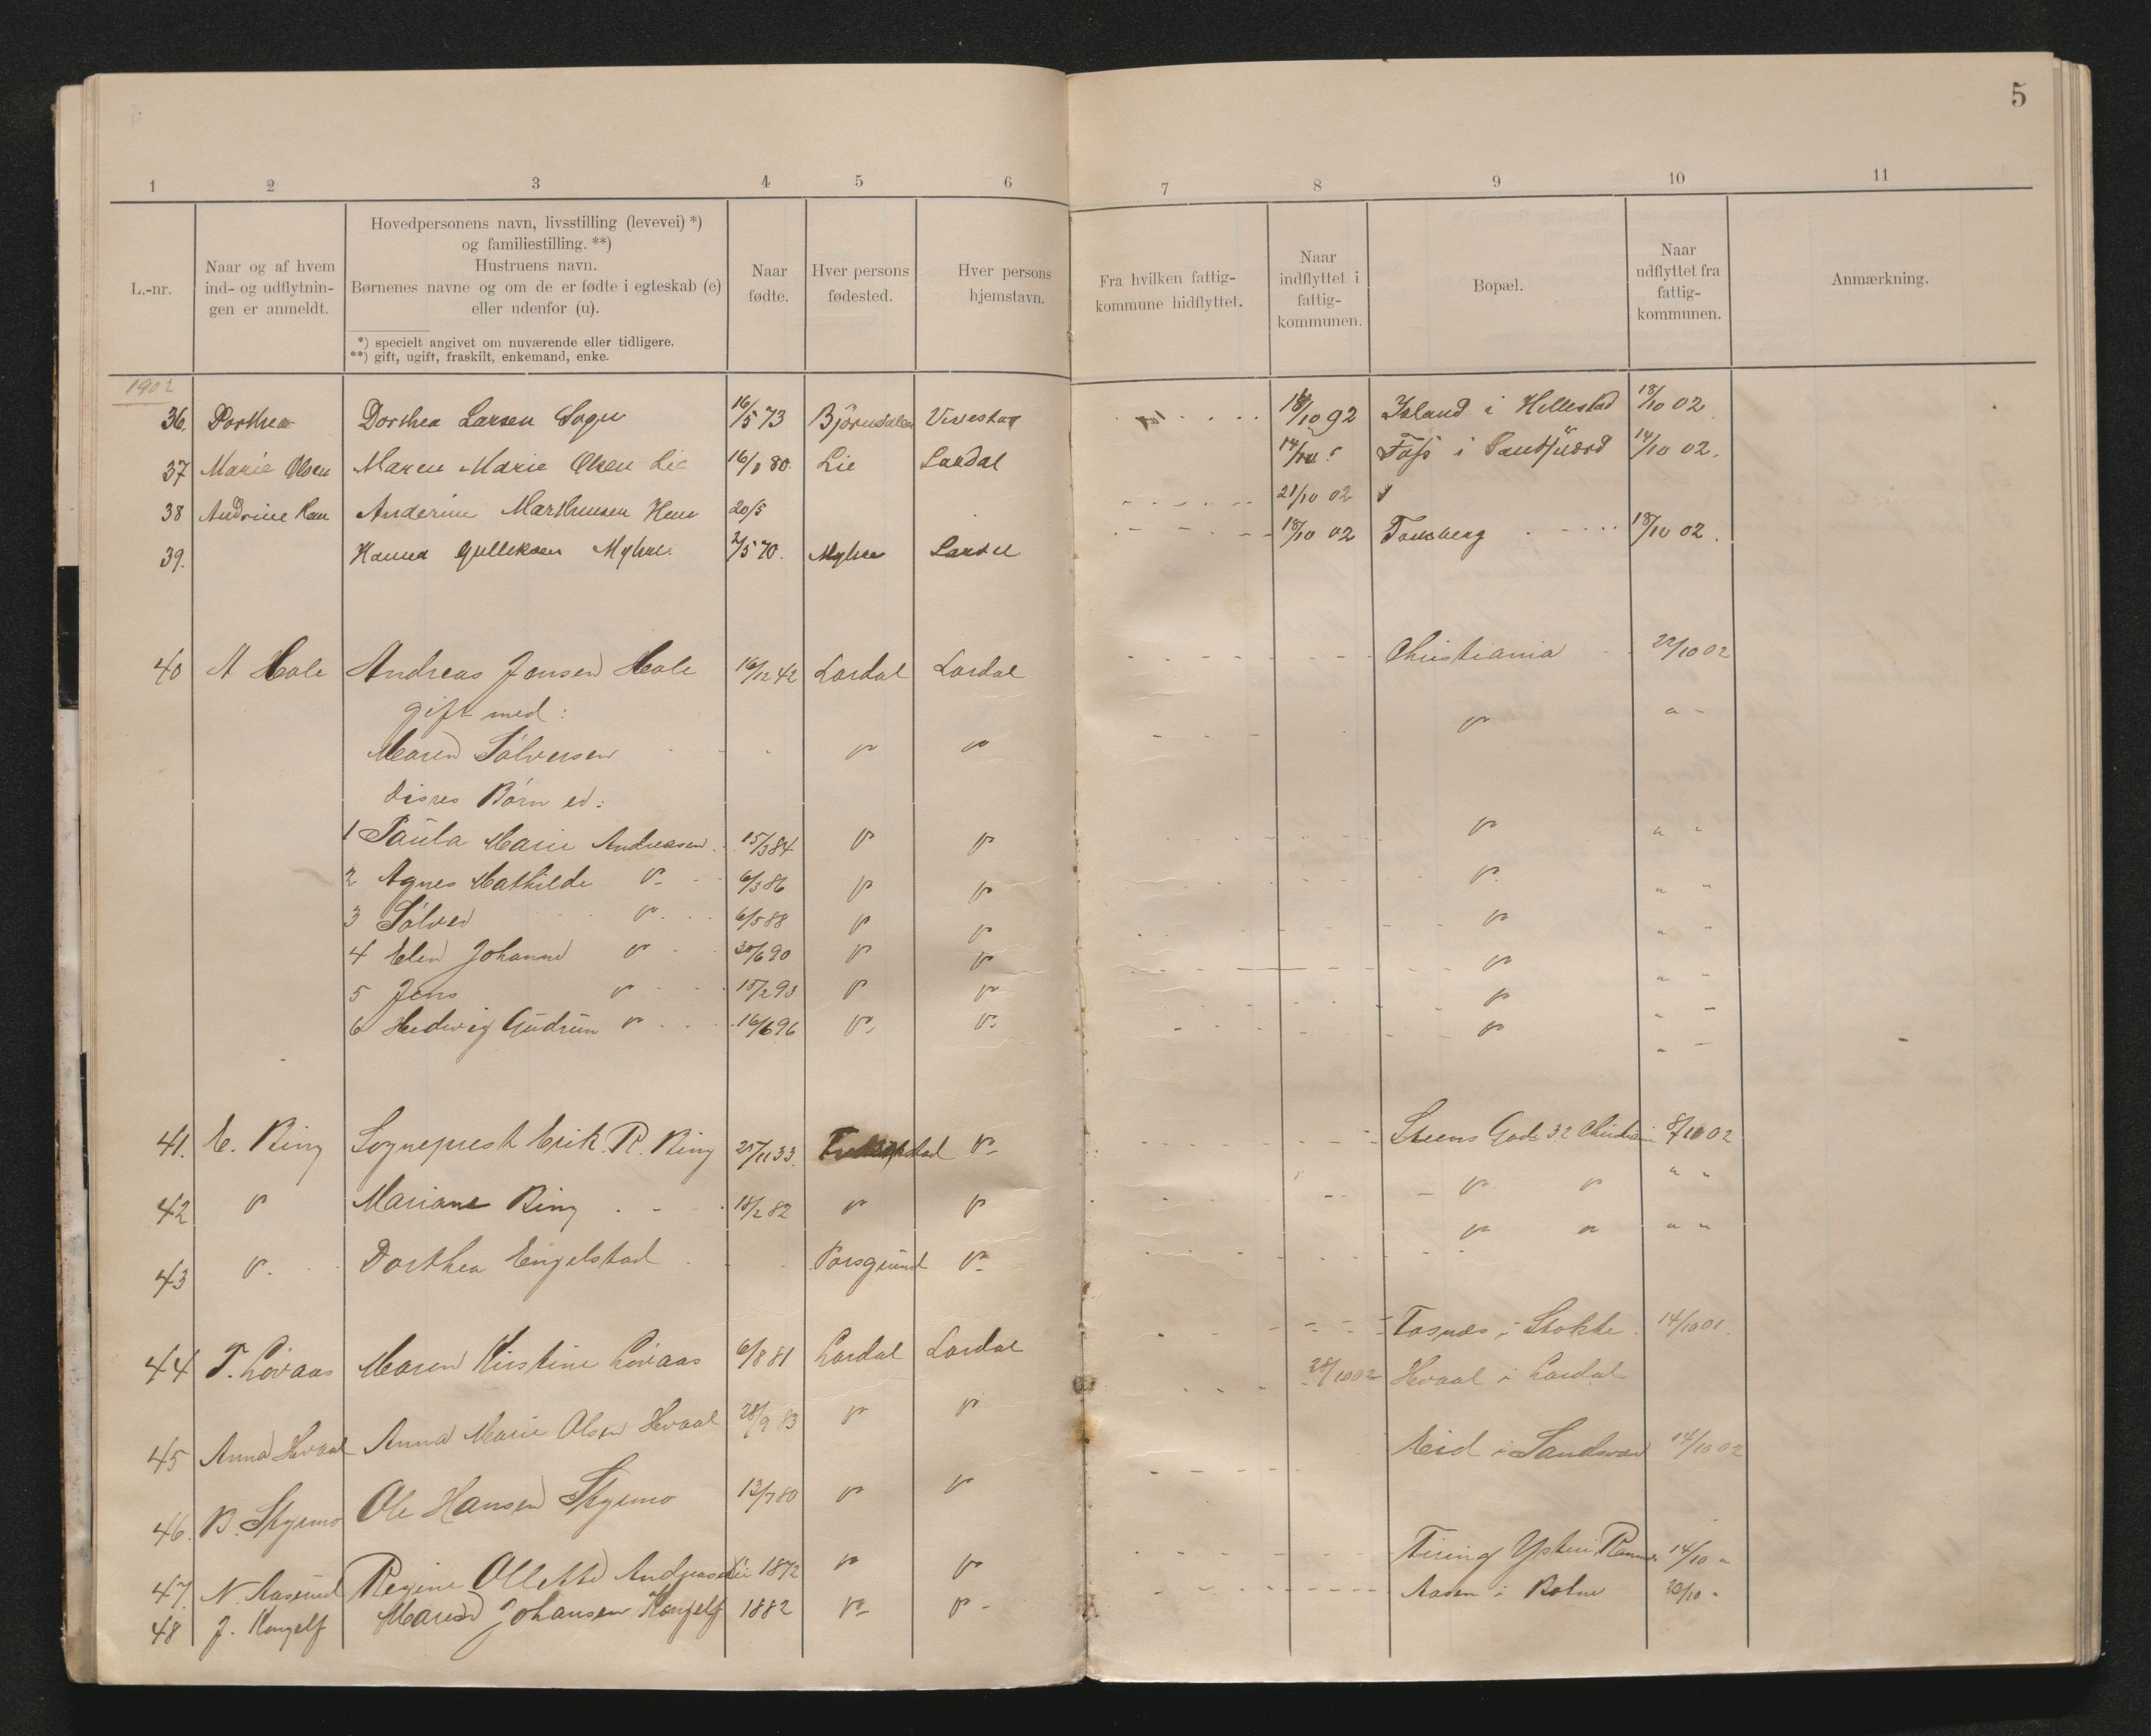 5
1 2 3 4 5 6 7 8 9 10 11
L.-nr.
Naar og af hvem
ind- og udflytnin-
gen er anmeldt.
Hovedpersonens navn, livsstilling (levevei) *)
og familiestilling. **)
Hustruens navn.
Børnenes navne og om de er fødte i egteskab (e)
eller udenfor (u).
*) specielt angivet om nuværende eller tidligere.
**) gift, ugift, fraskilt, enkemand, enke.
Naar
fødte.
Hver persons
fødested.
Hver persons
hjemstavn.
Fra hvilken fattig-
kommune hidflyttet.
Naar
indflyttet i
fattig-
kommunen.
Bopæl.
Naar
udflyttet fra
fattig-
kommunen.
Anmærkning.
1902
36. Dorthea Dorthea Larsen Sogn 16/5 73 Björndalen Vivestad 18/10 92 Island i Hillestad 18/10 02
37 Marie Olsen Maren Marie Olsen Lie 16/8 80 Lie Lardal 14/10 i Sandfjærd 14/10 02.
38 Anderine Marthinsen 20/5 21/10 02
39. Hanna Gulleksen Myhre 2/5 70. Myhre Lardal 18/10 02 Tønsberg 18/10 02.
40 A Hole Andreas Jensen Hole 16/12 42 Lardal Lardal Christiania 22/10 02
gift med:
Maren Sølversen " " " " -
disses Børn er:
1 Paula Marie Andreasen 15/3 84 " " " " "
2 Agnes Mathilde " 6/3 86 " " " " "
3 Sølver " 6/5 88 " " " " "
4 Elen Johanne " 30/6 90 " " " " "
5 Jens " 15/2 93 " " " " -
6 Hedvig Gudrun " 16/6 96 " " " " -
41. E. Ring Sogneprest Erik R. Ring 25/11 33. " Steens Gade 32 Christiania 8/10 02
42 " Mariane Ring 18/2 82 " " " " " "
43 " Dorthea Engelstad Porsgrund " " " " "
44 T. Løvaas Maren Kirstine Løvaas 6/8 81 Lardal Lardal i Stokke 14/10 01.
45 Anna Hvaal Anna Marie Olsen Hvaal 28/9 83 " " 28/10 02 Hvaal i Lardal
46. B. Skjermo Ole Hansen Skjermo 13/7 80 " " Eid i Sandsvær 14/10 02
47. N. Aaserud Regine Ollette Andreasen 1872 " " 14/10 "
48 J. Kongelf Maren Johansen Kongelf 1882 " " Aasen i Botne 20/10 "